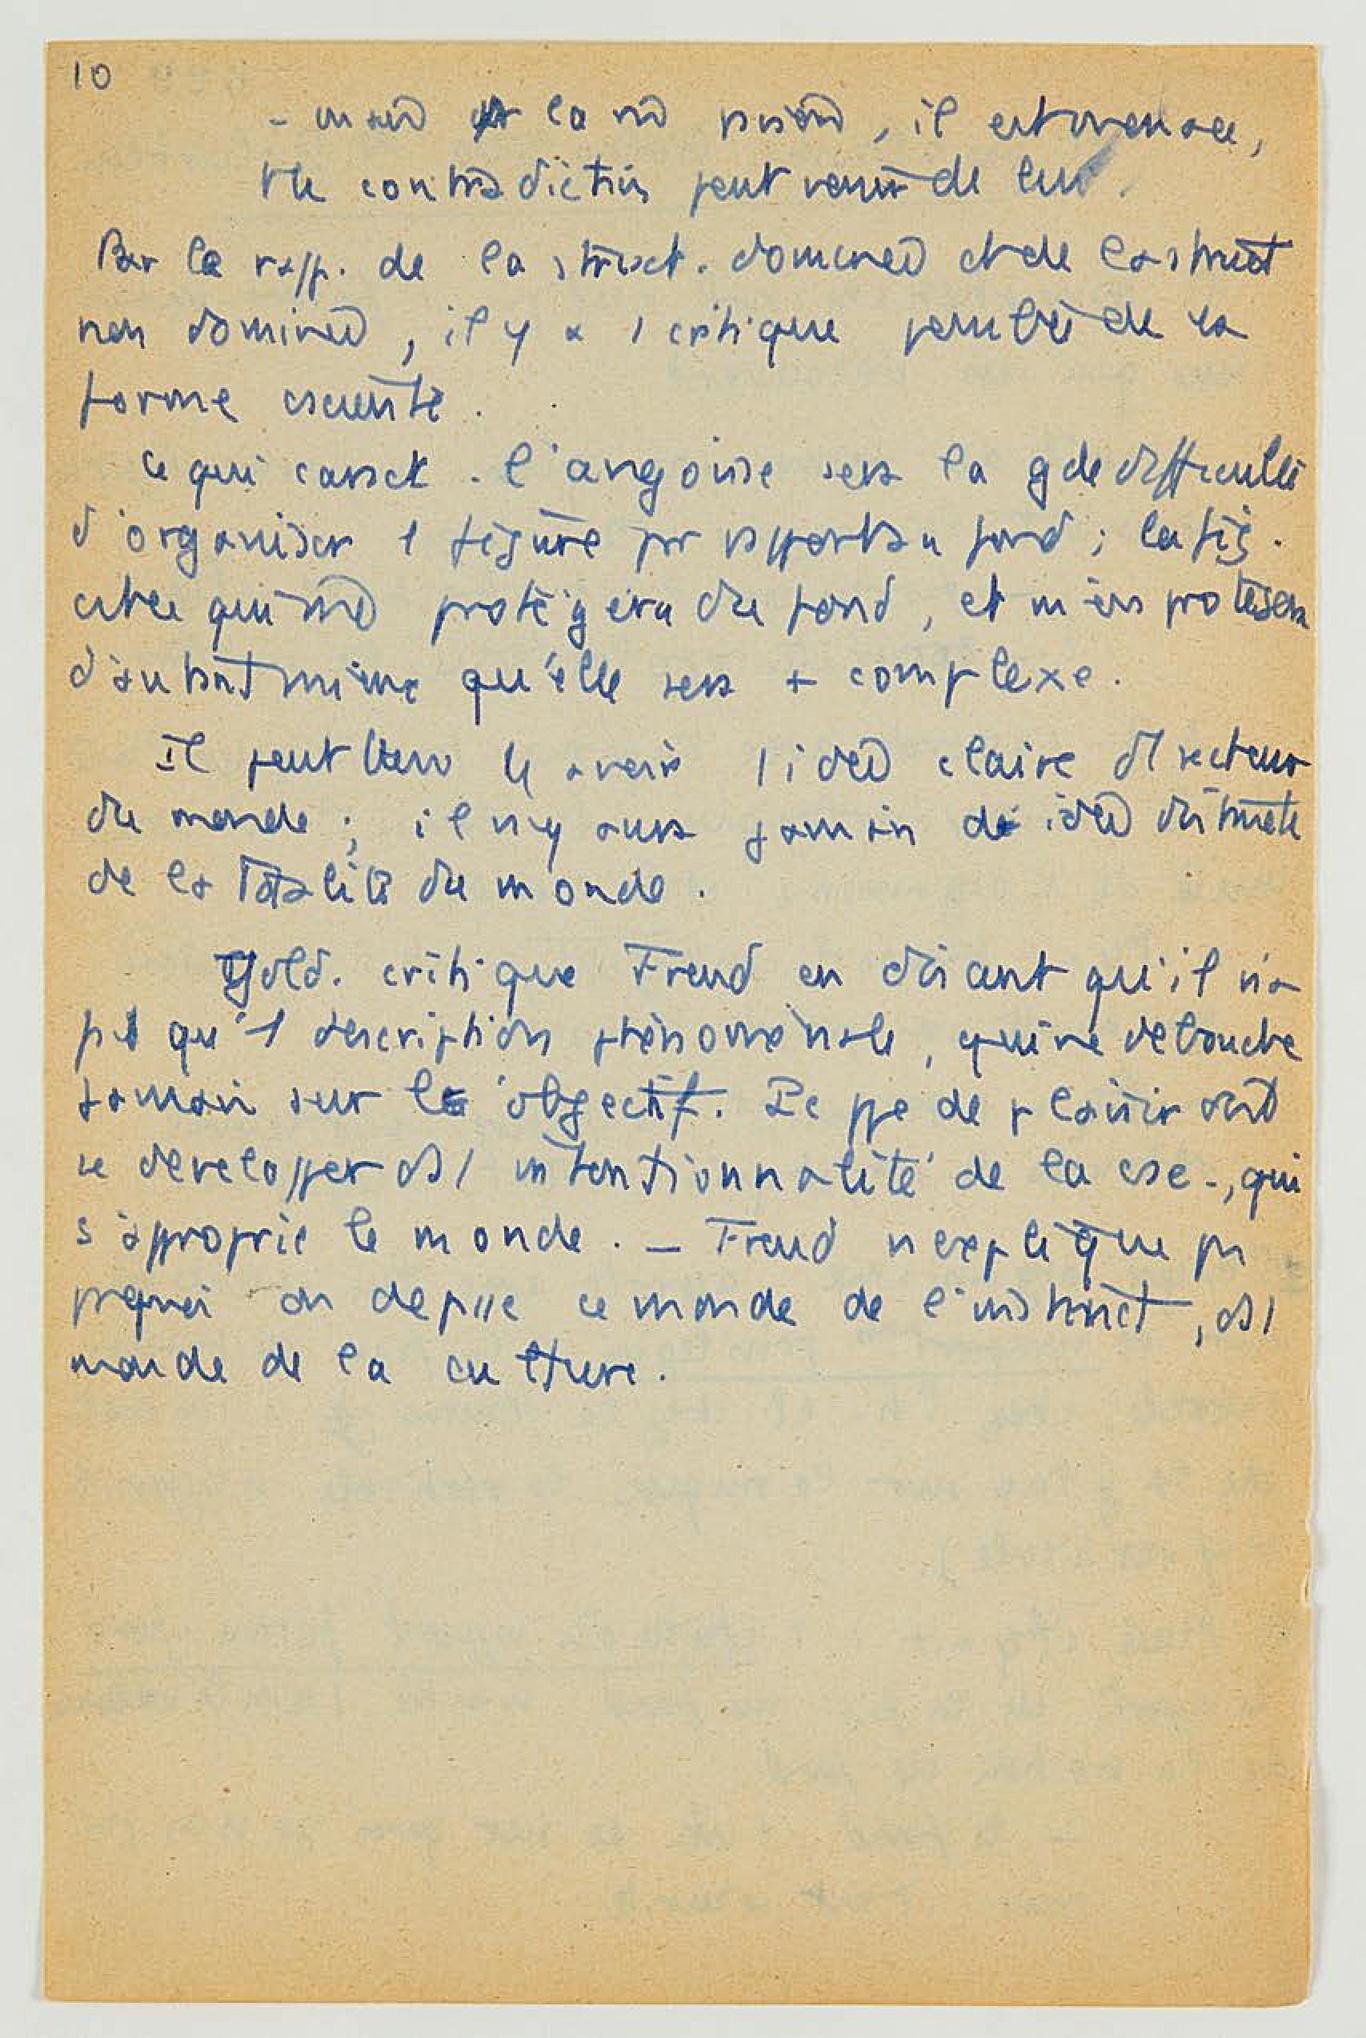 10
- mais la , il est menace,
tte contradiction peut venir de lui.
Par le rapp. de la struct. dominée et de la struct
non dominée, il y a 1 critique de la
forme
Ce qui caract. l'angoisse sera la gde difficulté
d'organiser 1 figure par rapport au fond ; la fig.
est ce qui protégera du fond, et m'en protégera
d'autant mieux qu'elle sera + complexe.
Il peut bien y avoir 1 idée claire d'1 secteur
du monde ; il n'y aura jamais de idée distincte
de la totalité du monde.
Gold. critique Freud en disant qu'il n'a
fait qu'1 description phénoménale, qui ne débouche
jamais sur l'objectif. Le ppe de plaisir doit
se développer ds 1 intentionnalité de la csc., qui
s'approprie le monde. - Freud n'explique pas
pquoi on dépasse ce monde de l'instinct, ds 1
monde de la culture.